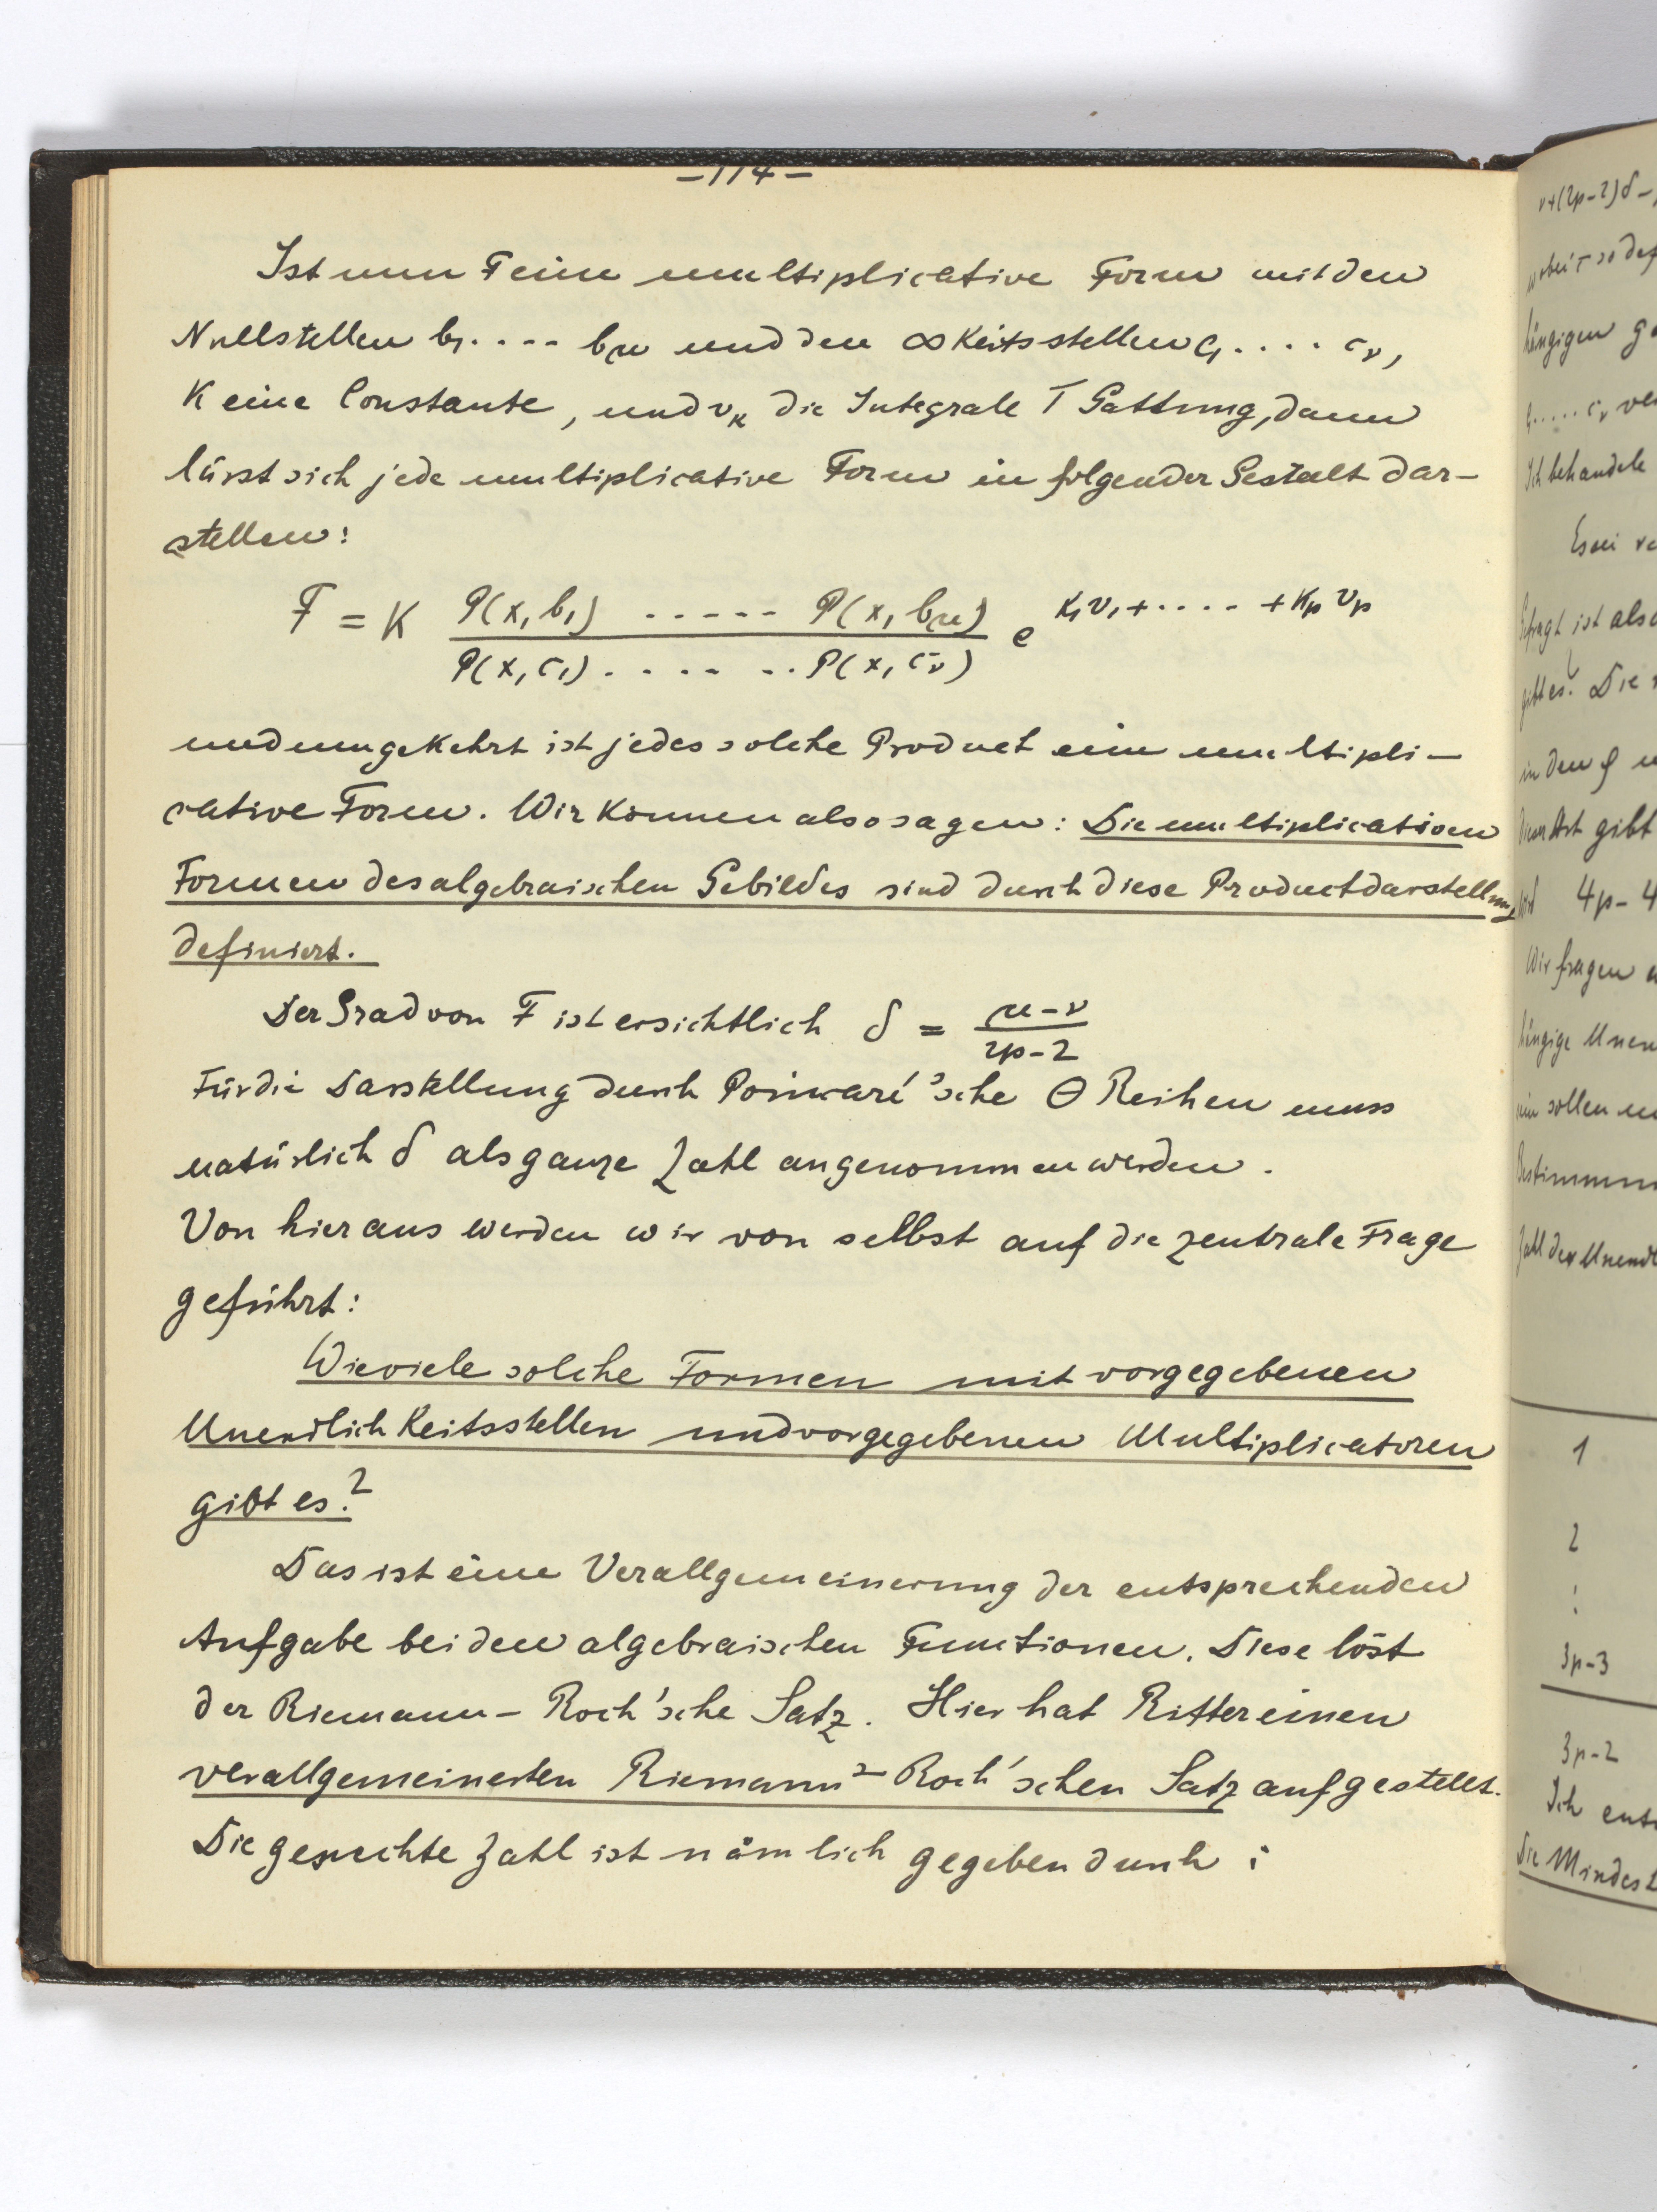 -114-
Ist nun F eine multiplicative Form mit den
Nullstellen b₁.... bμ und den ∞keitsstellen c₁.... cν,
K eine Constante, und vκ die Integrale I Gattung, dann
lässt sich jede multiplicative Form in folgender Gestalt dar-
stellen:
F = K P(x,b₁) ..... P(x,bμ) / P(x,c₁) ...... P(x,cν) e^{K₁v₁+.... +Kₚvₚ}
und umgekehrt ist jedes solche Product eine multipli-
cative Form. Wir können also sagen: Die multiplicativen
Formen des algebraischen Gebildes sind durch diese Productdarstellung
definiert.
Der Grad von F ist ersichtlich δ = μ-ν / 2p-2
Für die Darstellung durch Poincaré'sche Θ Reihen muss
natürlich δ als ganze Zahl angenommen werden.
Von hier aus werden wir von selbst auf die zentrale Frage
geführt:
Wieviele solche Formen mit vorgegebenen
Unendlichkeitsstellen und vorgegebenen Multiplicatoren
gibt es?
Das ist eine Verallgemeinerung der entsprechenden
Aufgabe bei den algebraischen Functionen. Diese löst
der Riemann-Roch'sche Satz. Hier hat Ritter einen
verallgemeinerten Riemann-Roch'schen Satz aufgestellt.
Die gesuchte Zahl ist nämlich gegeben durch :
ν+(2p-2)δ-
hängigen
c₁..... cν
Ich behandele
Es sei
Gefragt ist also
gibt es? Die
in den φ
dieser Art gibt
4p-4
Wir fragen
hängige
sein sollen
Zahl der
1
2
:
3p-3
3p-2
Ich
Die Mindest